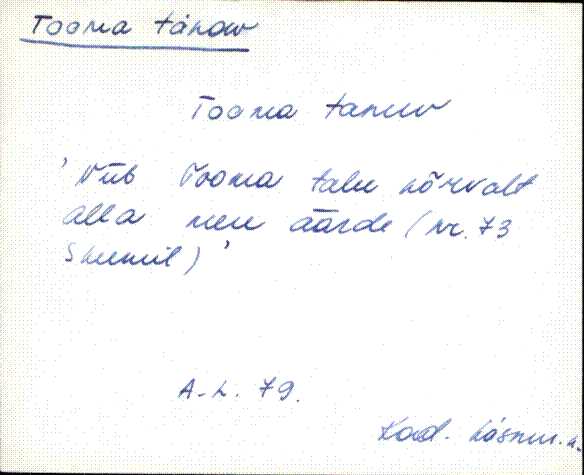 Tooma tänow
Tooma tanuv
'Viib Tooma talu kõrvalt
alla mere äärde (nr. 73
skeemil)'
A.-L. 79.
Kad.